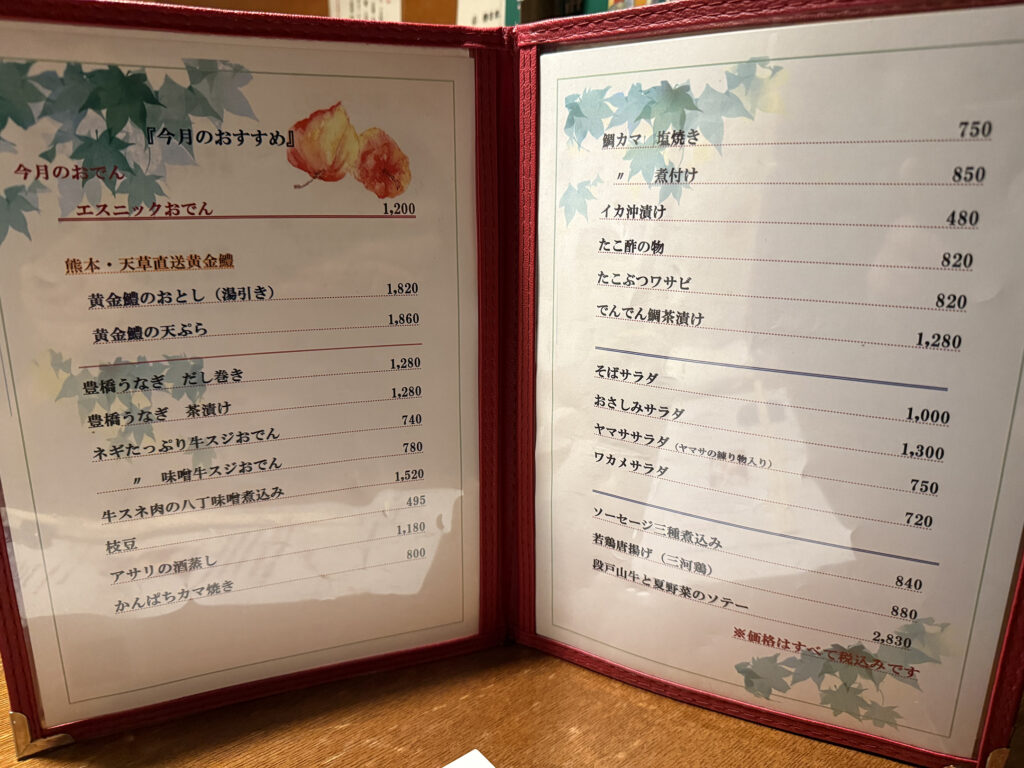 『今月のおすすめ』
今月のおでん
エスニックおでん 1,200
熊本・天草直送黄金鱧
黄金鱧のおとし（湯引き） 1,820
黄金鱧の天ぷら 1,860
豊橋うなぎ だし巻き 1,280
豊橋うなぎ 茶漬け 1,280
ネギたっぷり牛スジおでん 740
〃 味噌牛スジおでん 780
牛スネ肉の八丁味噌煮込み 1,520
枝豆 495
アサリの酒蒸し 1,180
かんぱちカマ焼き 800
鯛カマ 塩焼き 750
〃 煮付け 850
イカ沖漬け 480
たこ酢の物 820
たこぶつワサビ 820
でんでん鯛茶漬け 1,280
そばサラダ 1,000
おさしみサラダ 1,300
ヤマササラダ（ヤマサの練り物入り） 750
ワカメサラダ 720
ソーセージ三種煮込み 840
若鶏唐揚げ（三河鶏） 880
段戸山牛と夏野菜のソテー 2,830
※価格はすべて税込みです